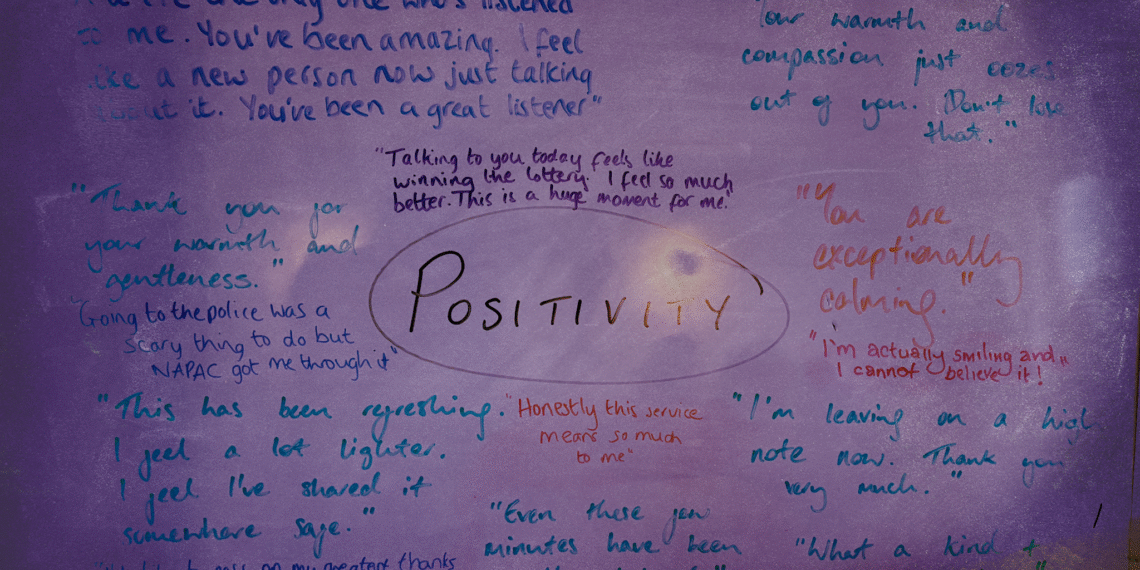 me. You've been amazing. I feel
a new person now just talking
it. You've been a great listener"
warmth and
compassion just oozes
out of you. Don't lose
that."
"Talking to you today feels like
winning the lottery. I feel so much
better. This is a huge moment for me."
"Thank you for
your warmth and
gentleness."
"Going to the police was a
scary thing to do but
NAPAC got me through it"
POSITIVITY
"You are
exceptionally
calming."
"I'm actually smiling and
I cannot believe it!"
"This has been refreshing.
I feel a lot lighter.
I feel I've shared it
somewhere safe."
"Honestly this service
means so much
to me"
"I'm leaving on a high
note now. Thank you
very much."
"Even these few
minutes have been
"What a kind
my greatest thanks